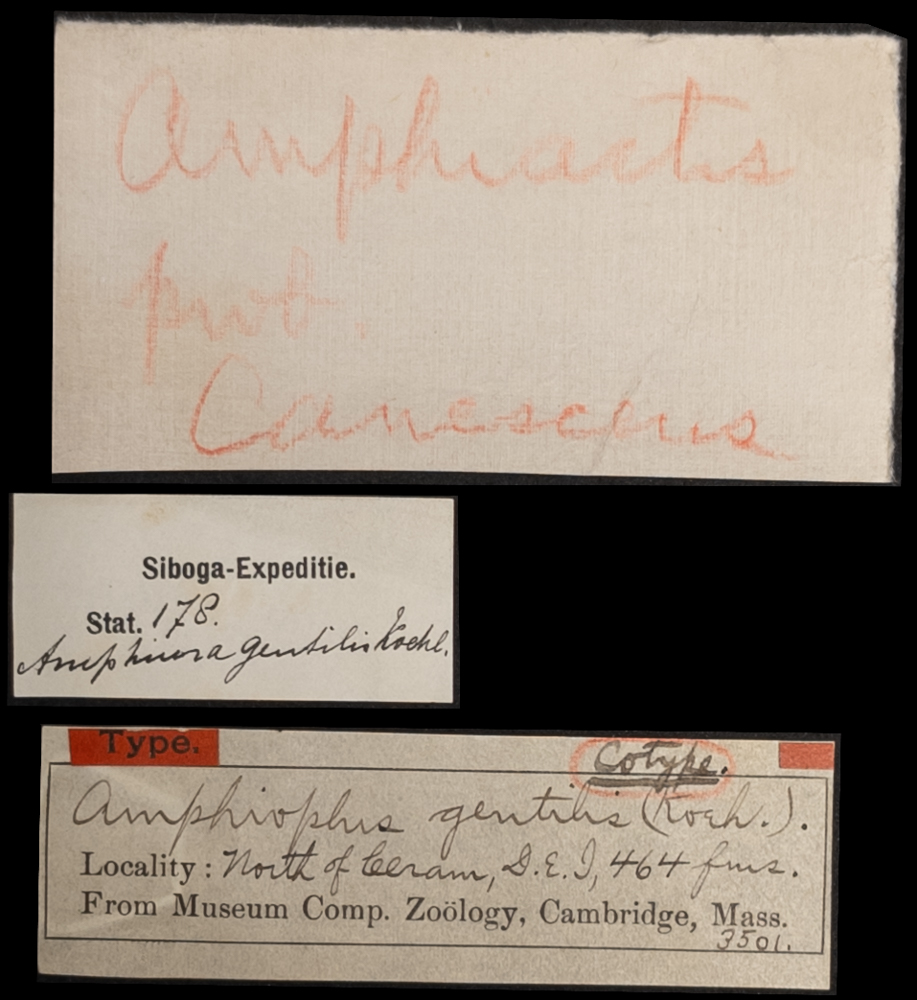 Amphiactis
prob.
Canescens
Siboga-Expeditie.
Stat. 178.
Amphiura gentilis Koehl.
Type.
Cotype.
Amphioplus gentilis (Koeh.).
Locality: North of Ceram, D.E.I, 464 fms.
From Museum Comp. Zoölogy, Cambridge, Mass.
3501.